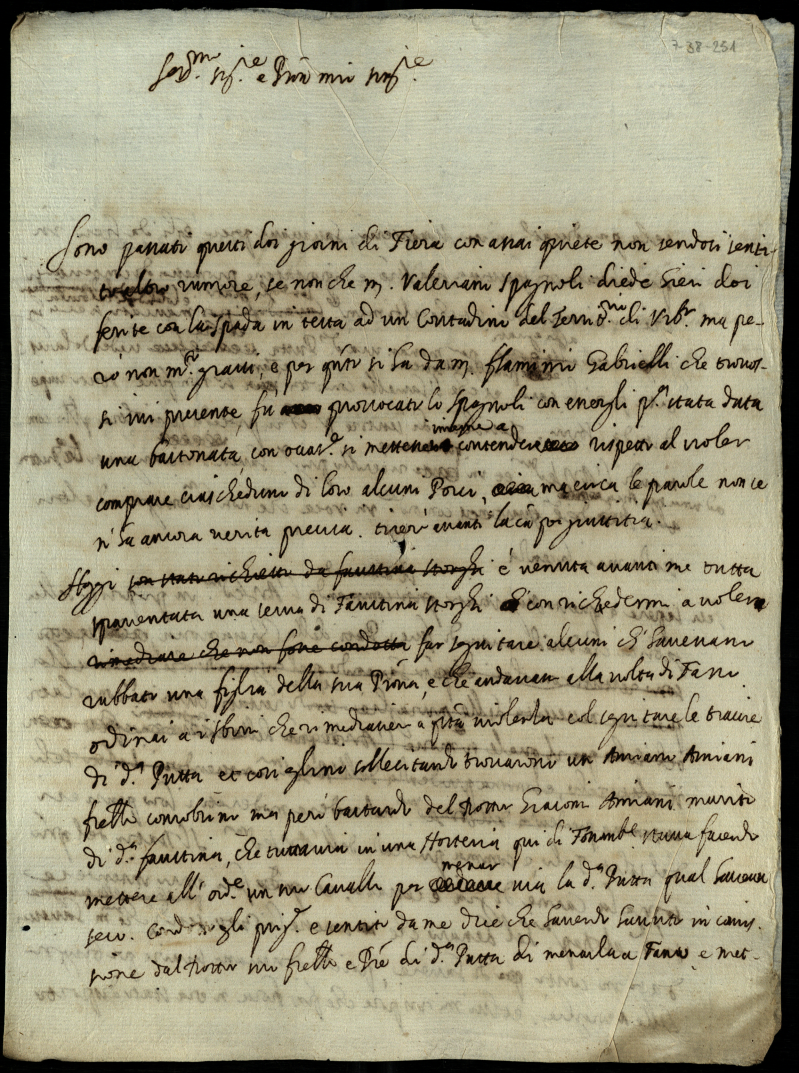 7-38-251
Ser.mo sig.re e Prōn mio sing.re
Sono passati questi doi giorni di Fiera con assai quiete non sendosi senti-
to altro rumore, se non che m. Valeriani Spagnoli diede hieri doi
ferite con la spada in testa ad un Contadini del Territ.rio di Urb.o ma pe-
rò non m.to gravi, e per q̄nto si ha da m. flaminii Gabrielli che trovos-
si ivi presente, fù provocato lo spagnoli con avergli p.a stata data
una bastonata con occas.e si mettevano insieme a contendere rispetto al voler
comprare ciaschéduno di loro alcuni Porci, ma circa le parole non se
n' ha ancora verita precisa. tirerò avanti la cā per giustitia.
Hoggi son stato richiesto da faustina storghi é venuta avanti me tutta
spaventata una serva di Faustina storghi con richiedermi a voler
rimediare che non fosse condotta far seguitare alcuni ch' havevano
rubbato una figlia della sua Prōna, e che andavano alla volta di Fano
ordinai a i sbirri che rimediassero a q̄sta violentia col seguitare le traccie
di d.a Putta et cosi glino sollecitando trovaroni un Amiani Amiani
frello consobrino ma però bastardo del dottor Giacomi Amiani marito
di d.a faustina, che tuttavia in una Hosteria qui di Fossomb.e stava facendo
mettere all' ord.e un suo Cavallo per menar via la d.a Putta qual haveva
seco. Condussegli prig.e e sentito da me dice che havendo havuto in comis-
sione dal dottor suo frello e Prē di d.a Putta di menarla a Fano e met-